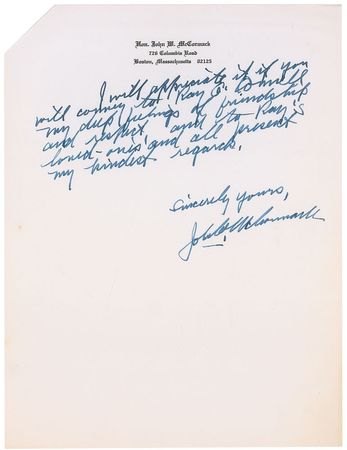 Hon. John W. McCormack
726 Columbia Road
Boston, Massachusetts 02125
I will appreciate it if you
will convey to "Ray"
my deep feelings of friendship
and respect, and to Ray's
loved-ones, and all present
my kindest regards.
Sincerely yours,
John W. McCormack